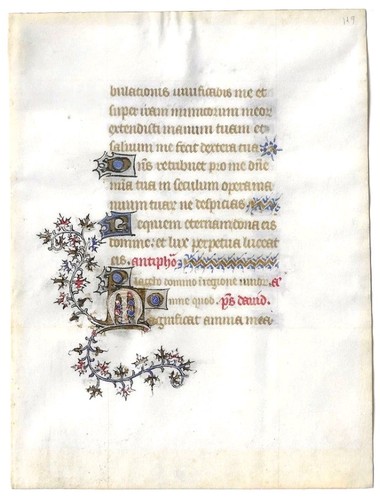 119
bulationis uiuificabis me et
super iram inimicorum meor
extendisti manum tuam et
saluum me fecit dextera tua
Dn̄s retribuet pro me dn̄e
mia tua in seculum opera ma
nuum tuar ne despicias
Requiem eternam dona eis
domine. et lux perpetua luceat
eis. antipho
Placebo domino i regione uiuor. a
mne quod. p̄s dauid.
Magnificat anima mea